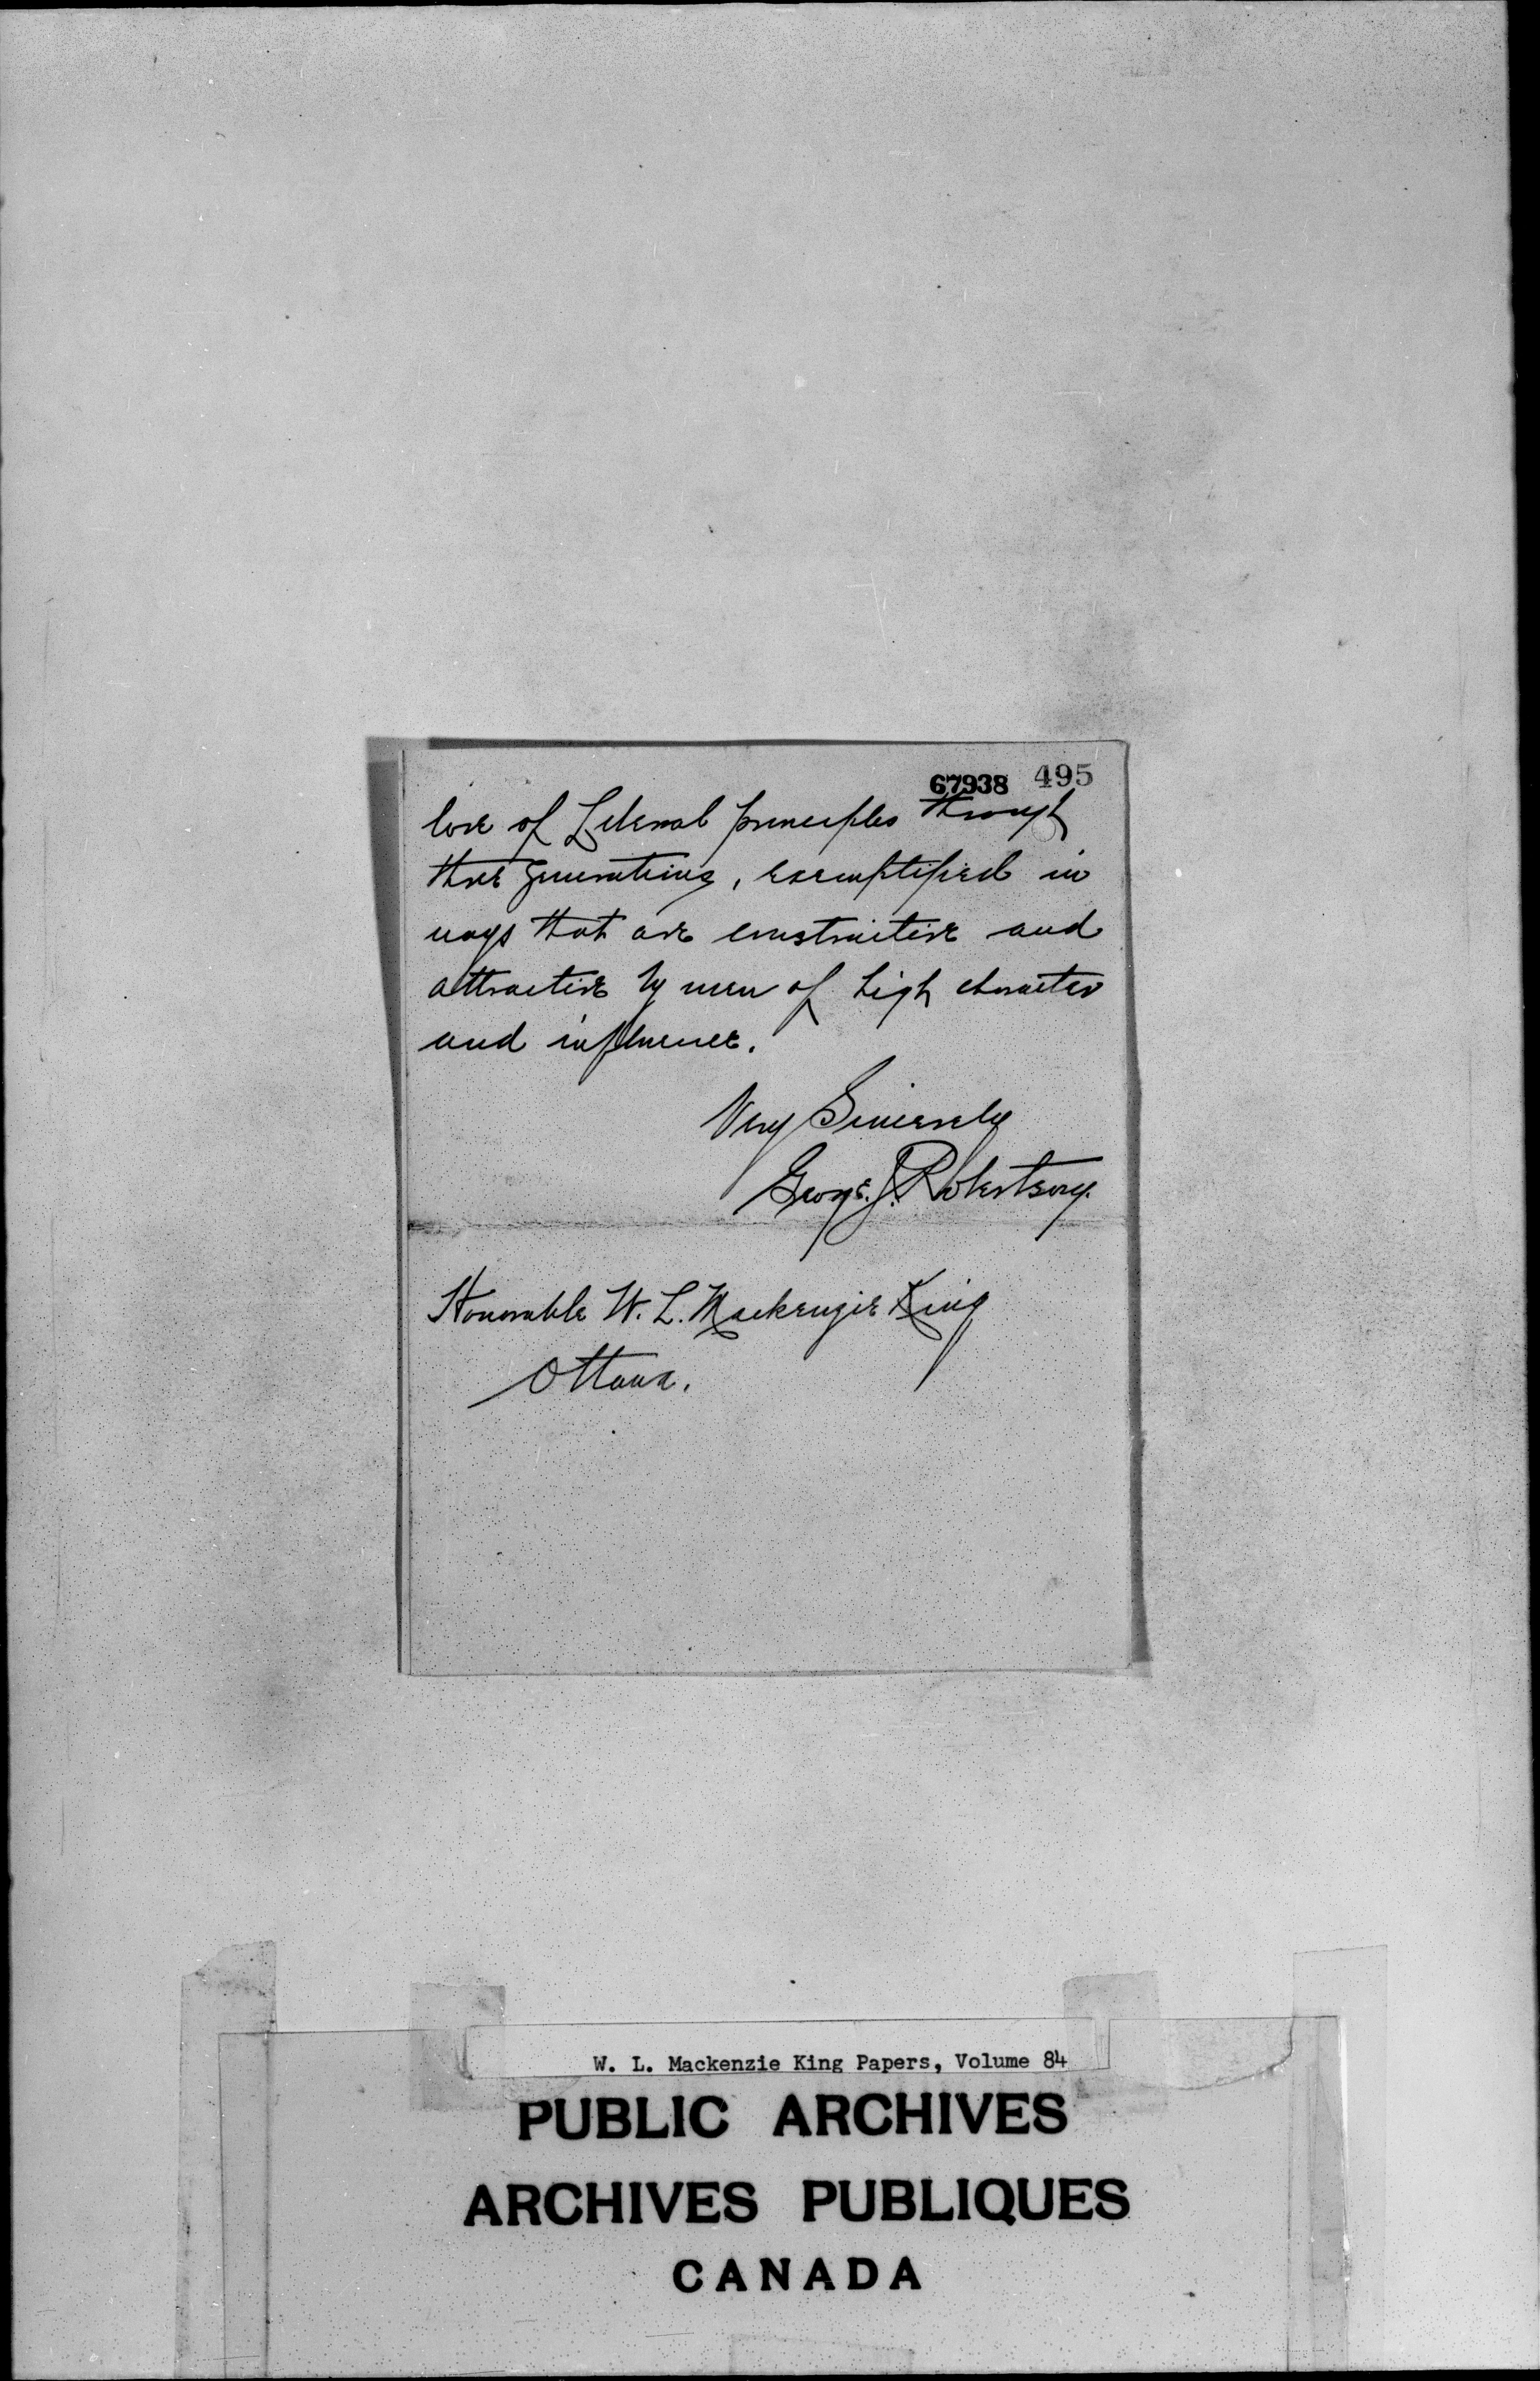 67938 495
love of Liberal principles through
three generations, exemplified in
ways that are constructive and
attractive by men of high character
and influence.
Very Sincerely
George J. Robertson.
Honorable W. L. Mackenzie King
Ottawa.
W. L. Mackenzie King Papers, Volume 84
PUBLIC ARCHIVES
ARCHIVES PUBLIQUES
CANADA